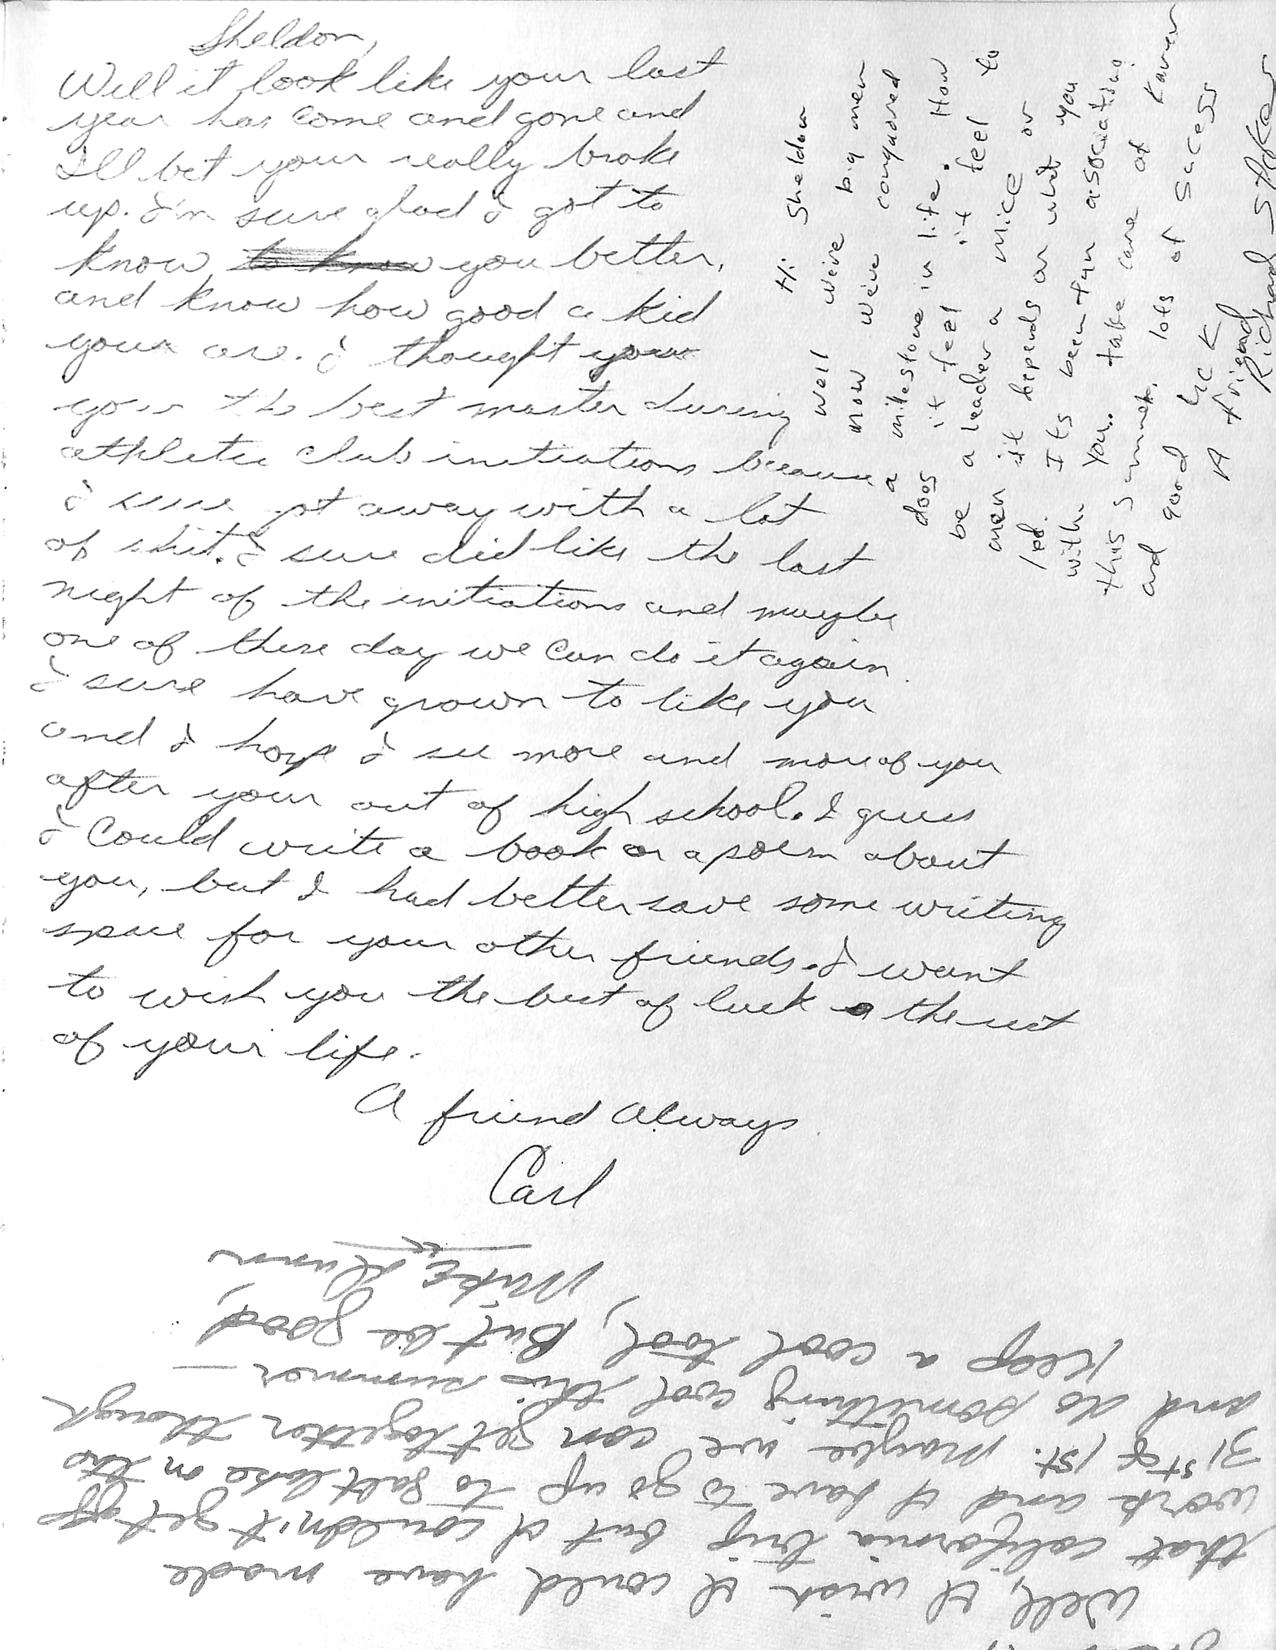 Sheldon,
Well it look like your last
year has come and gone and
I'll bet your really broke
up. I'm sure glad I got to
know to know you better,
and know how good a kid
your are. I thought your
your the best master during
athletic club initiations because
I sure got away with a lot
of shit. I sure did like the last
night of the initiations and maybe
one of these day we can do it again.
I sure have grown to like you
and I hope I see more and more of you
after your out of high school. I guess
I could write a book or a poem about
you, but I had better save some writing
space for your other friends. I want
to wish you the best of luck the rest
of your life.
A friend Always
Carl
Hi Sheldon
Well we've big men
now we've conquored
a milestone in life. How
does it feel it feel to
be a leader a mice or
men it depends on what you
led. Its been fun associating
with you. take care of Karen
this summer, lots of sucess
and good luck
A friend
Richard Stoker
Well, I wish I could have made
that california trip but I couldn't get off
work and I have to go up to Salt Lake on the
31st of 1st. Maybe we can get together though
and do something cool this summer —
Keep a cool tool, But be good,
Mike Dunn